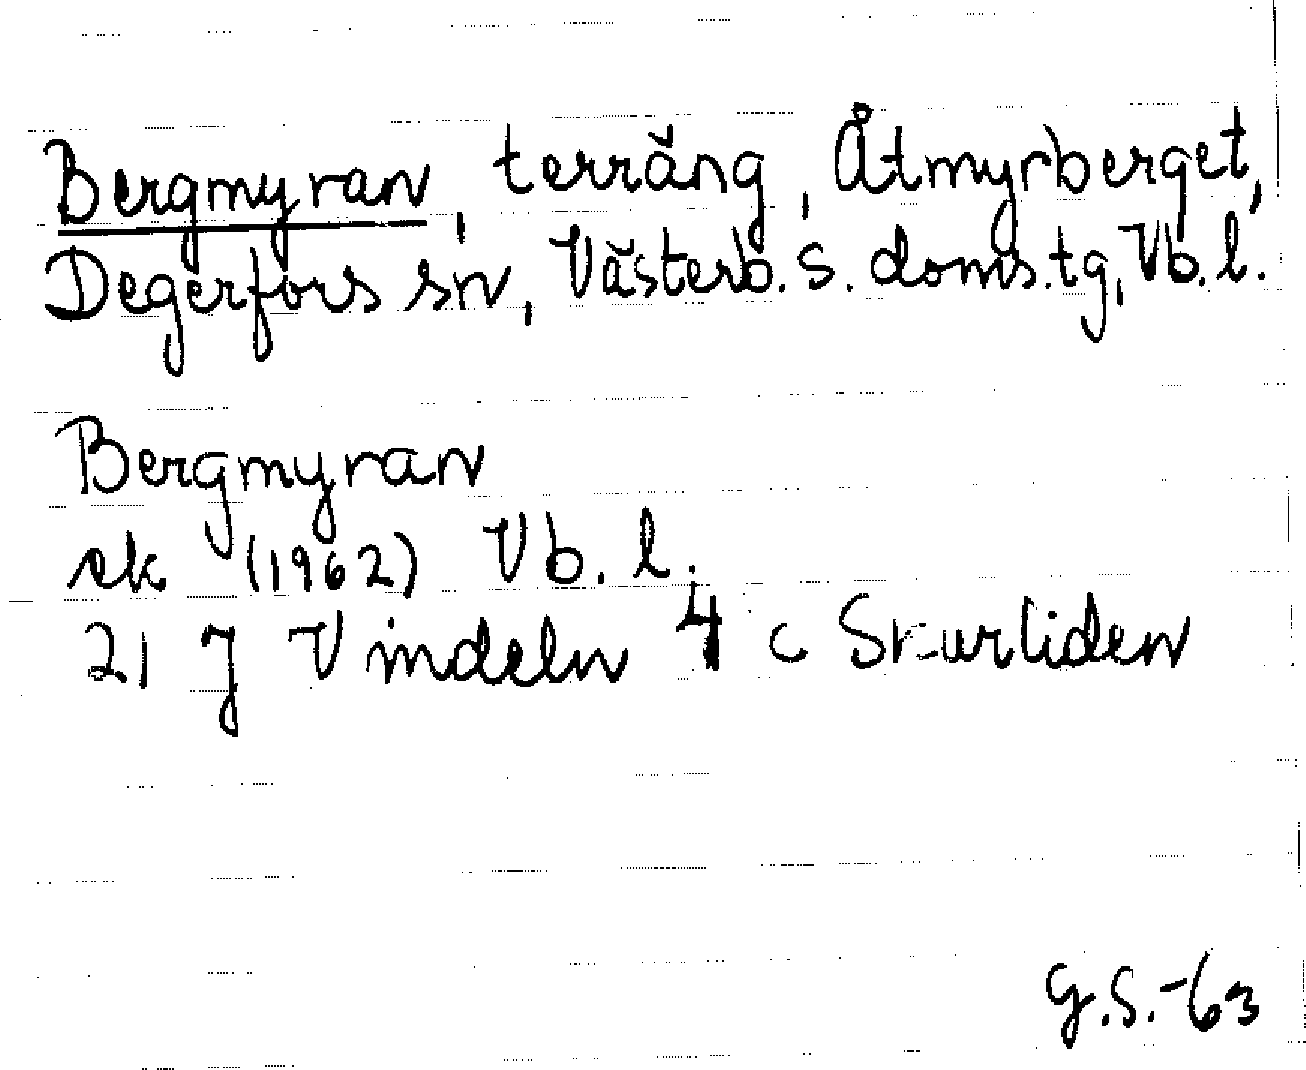 Bergmyran, terräng, Åtmyrberget,
Degerfors sn, Västerb. s. doms.tg, Vb. l.
Bergmyran
ek (1962) Vb. l.
21 J Vindeln 4 c Skurliden
G.S.-63